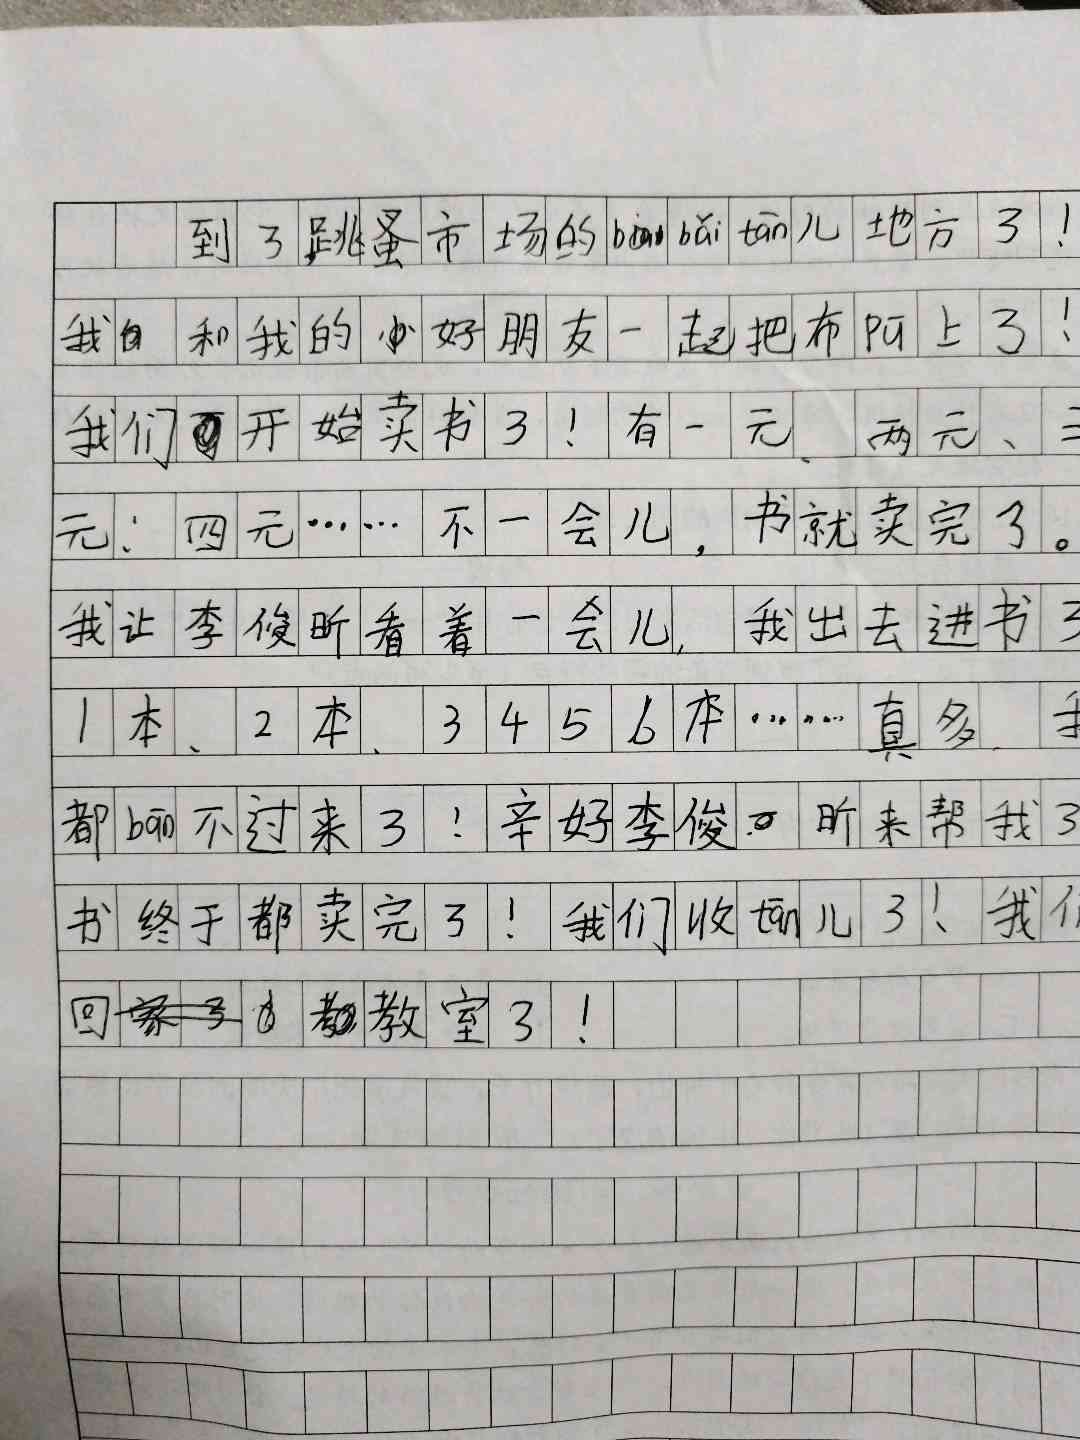 到了跳蚤市场的bǎi tān儿地方了！
我和我的好朋友一起把布pū上了！
我们开始卖书了！有一元、两元、三
元、四元……不一会儿，书就卖完了。
我让李俊昕看着一会儿，我出去进书了
1本、2本、3456本……真多、我
都bān不过来了！辛好李俊昕来帮我了
书终于都卖完了！我们收tān儿了！我们
回教室了！